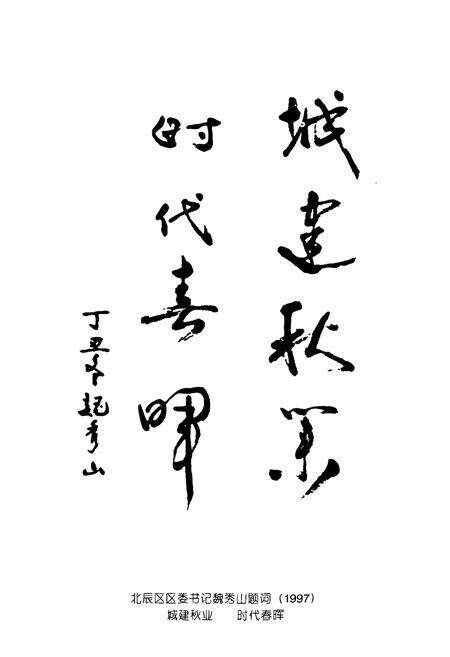 城建秋业
时代春晖
丁丑冬魏秀山
北辰区区委书记魏秀山题词（1997）
城建秋业　时代春晖